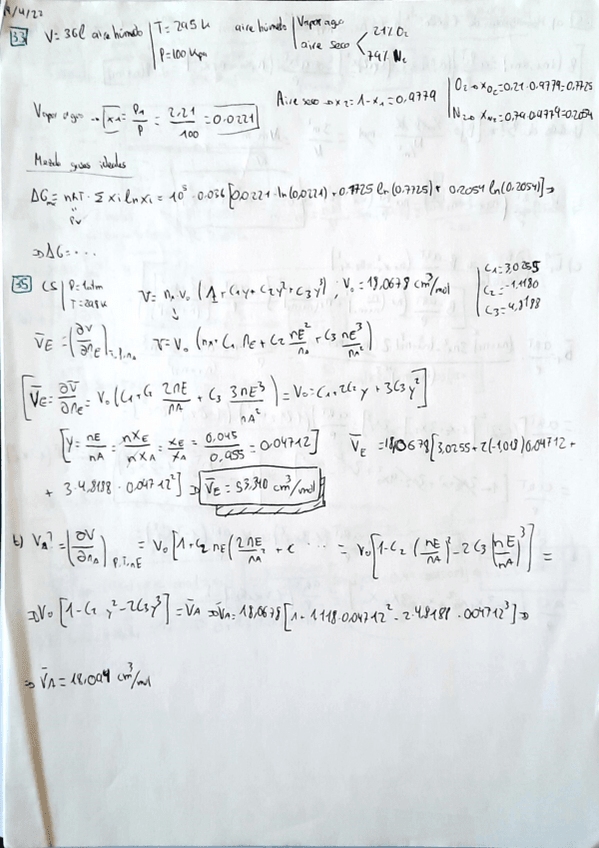 33 V = 36l aire húmedo | T = 295 K aire húmedo | Vapor agua
P = 100 KPa aire seco < 21% O₂
79% N₂
Vapor agua → x₁ = P₁/P = 2,21/100 = 0.0221 Aire seco → x₂ = 1 - x₁ = 0,9779
O₂ → xO₂ = 0.21·0.9779 = 0.7725
N₂ → xN₂ = 0.79·0.9779 = 0.2054
Mezcla gases ideales
ΔG = nRT · Σ xi ln xi = 10⁵ · 0.036 [0,0221 · ln(0,0221) + 0.7725 ln(0.7725) + 0.2054 ln(0.2054)] ⇒
PV
⇒ ΔG = ...
35 CS | P = 1 atm V = nₐ V₀ (1 + C₁y + C₂y² + C₃y³) ; V₀ = 18,0678 cm³/mol
T = 298 K
C₁ = 3,0255
C₂ = -1,1180
C₃ = 4,8188
V̄E = (∂V/∂nE) V = V₀ (nA + C₁ nE + C₂ nE²/nA + C₃ nE³/nA²)
[V̄E = ∂V/∂nE = V₀ (C₁ + C₂ 2nE/nA + C₃ 3nE³/nA²) = V₀ = C₁ + 2C₂y + 3C₃y²]
[y = nE/nA = nxE/nxA = xE/xA = 0,045/0,955 = 0.04712] V̄E = 18,0678 [3,0255 + 2(-1,018) 0.04712 +
+ 3·4,8188 · 0.04712²] ⇒ V̄E = 53,340 cm³/mol
b) VA = (∂V/∂nA) P,T,nE = V₀ [1 + C₂ nE (2nE/nA² + C ... = V₀ [1 - C₂ (nE/nA)² - 2C₃ (nE/nA)³] =
⇒ V₀ [1 - C₂ y² - 2C₃y³] = V̄A ⇒ V̄A = 18,0678 [1 + 1.118·0.04712² - 2·4.8188 · 0.04712³] ⇒
⇒ V̄A = 18,094 cm³/mol